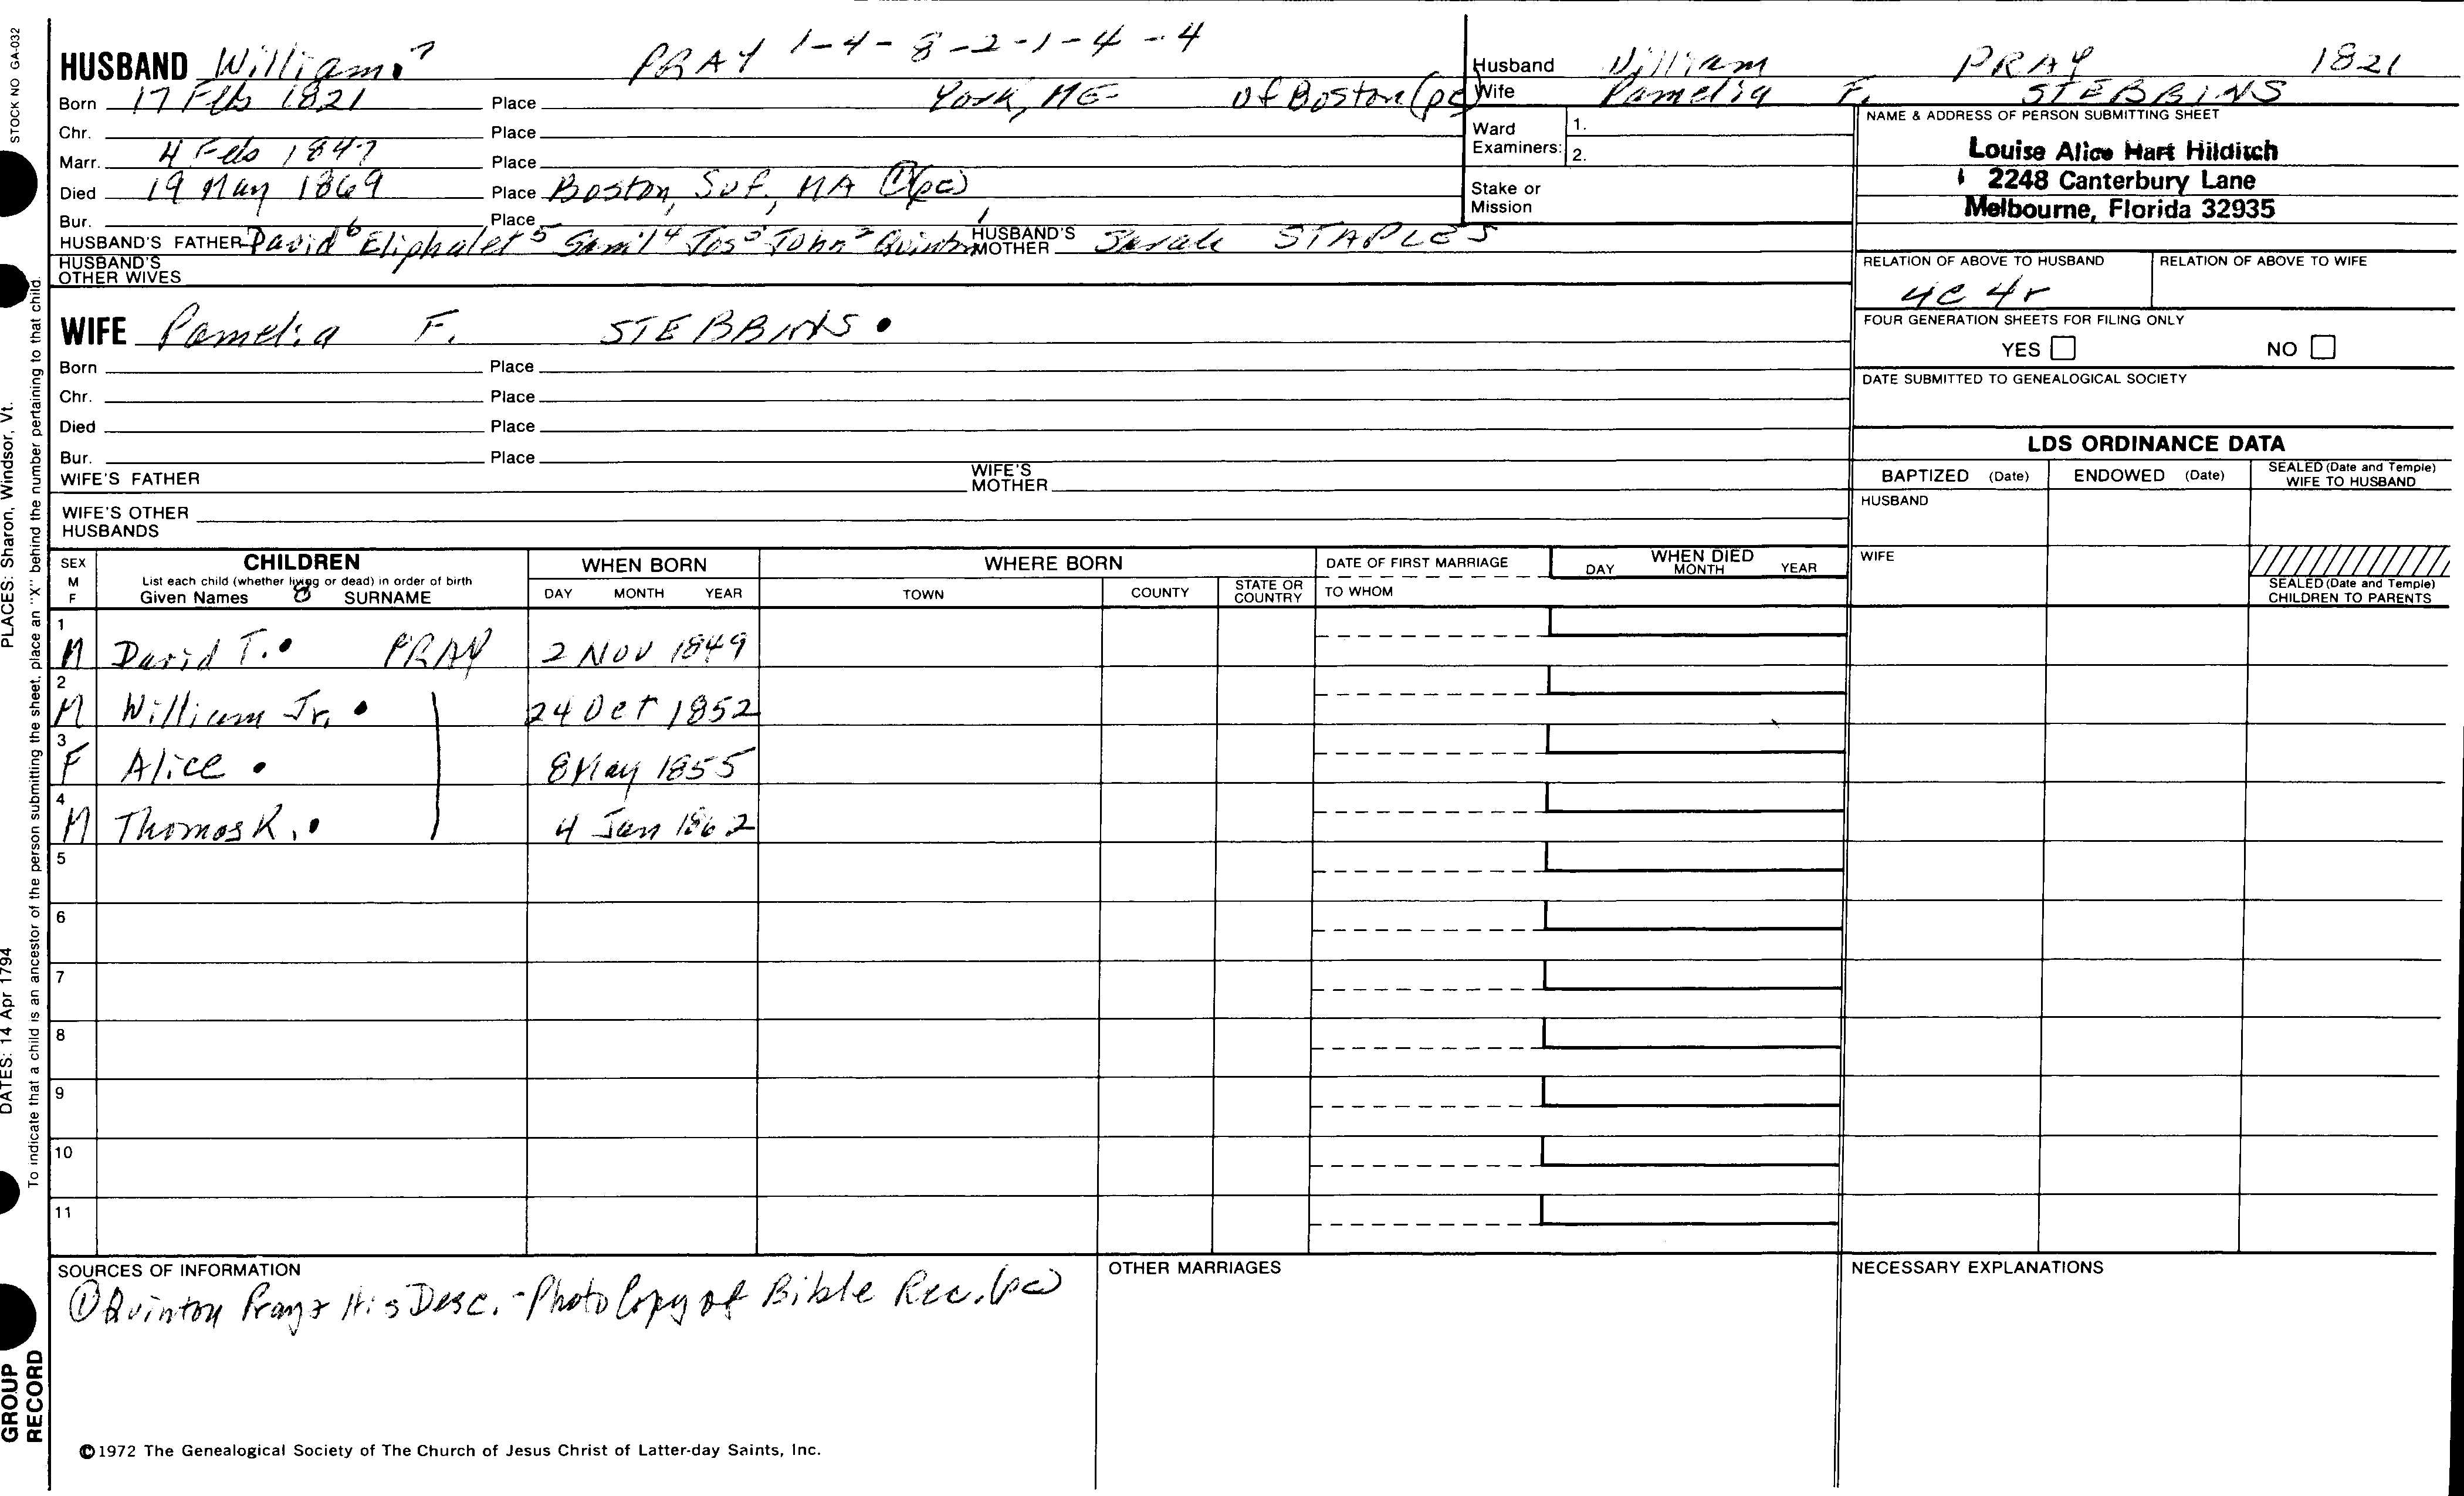 STOCK NO GA-032
PLACES: Sharon, Windsor, Vt.
DATES: 14 Apr 1794
To indicate that a child is an ancestor of the person submitting the sheet, place an "X" behind the number pertaining to that child.
GROUP
RECORD
HUSBAND William 7 PRAY 1-4-8-2-1-4-4
Born 17 Feb 1821 Place York, ME of Boston (pc)
Chr. Place
Marr. 4 Feb 1847 Place
Died 19 May 1869 Place Boston, Suf., MA ①(pc)
Bur. Place
HUSBAND'S FATHER David⁶ Eliphalet⁵ Sam'l⁴ Jos³ John² Quinton¹ HUSBAND'S MOTHER Sarah STAPLES
HUSBAND'S
OTHER WIVES
WIFE Pamelia F. STEBBINS
Born Place
Chr. Place
Died Place
Bur. Place
WIFE'S FATHER WIFE'S MOTHER
WIFE'S OTHER
HUSBANDS
Husband William PRAY 1821
Wife Pamelia F. STEBBINS
Ward
Examiners: 1.
2.
Stake or
Mission
NAME & ADDRESS OF PERSON SUBMITTING SHEET
Louise Alice Hart Hilditch
2248 Canterbury Lane
Melbourne, Florida 32935
RELATION OF ABOVE TO HUSBAND RELATION OF ABOVE TO WIFE
4c 4r
FOUR GENERATION SHEETS FOR FILING ONLY
YES NO
DATE SUBMITTED TO GENEALOGICAL SOCIETY
LDS ORDINANCE DATA
BAPTIZED (Date) ENDOWED (Date) SEALED (Date and Temple)
WIFE TO HUSBAND
HUSBAND
WIFE
SEALED (Date and Temple)
CHILDREN TO PARENTS
SEX
M
F
CHILDREN
List each child (whether living or dead) in order of birth
Given Names 8 SURNAME
WHEN BORN
DAY MONTH YEAR
WHERE BORN
TOWN COUNTY STATE OR COUNTRY
DATE OF FIRST MARRIAGE
TO WHOM
WHEN DIED
DAY MONTH YEAR
1 M David T. PRAY 2 Nov 1849
2 M William Jr. 24 Oct 1852
3 F Alice 8 May 1855
4 M Thomas K. 4 Jan 1862
5
6
7
8
9
10
11
SOURCES OF INFORMATION
① Quinton Pray & His Desc. - Photo Copy of Bible Rec. (pc)
OTHER MARRIAGES
NECESSARY EXPLANATIONS
©1972 The Genealogical Society of The Church of Jesus Christ of Latter-day Saints, Inc.